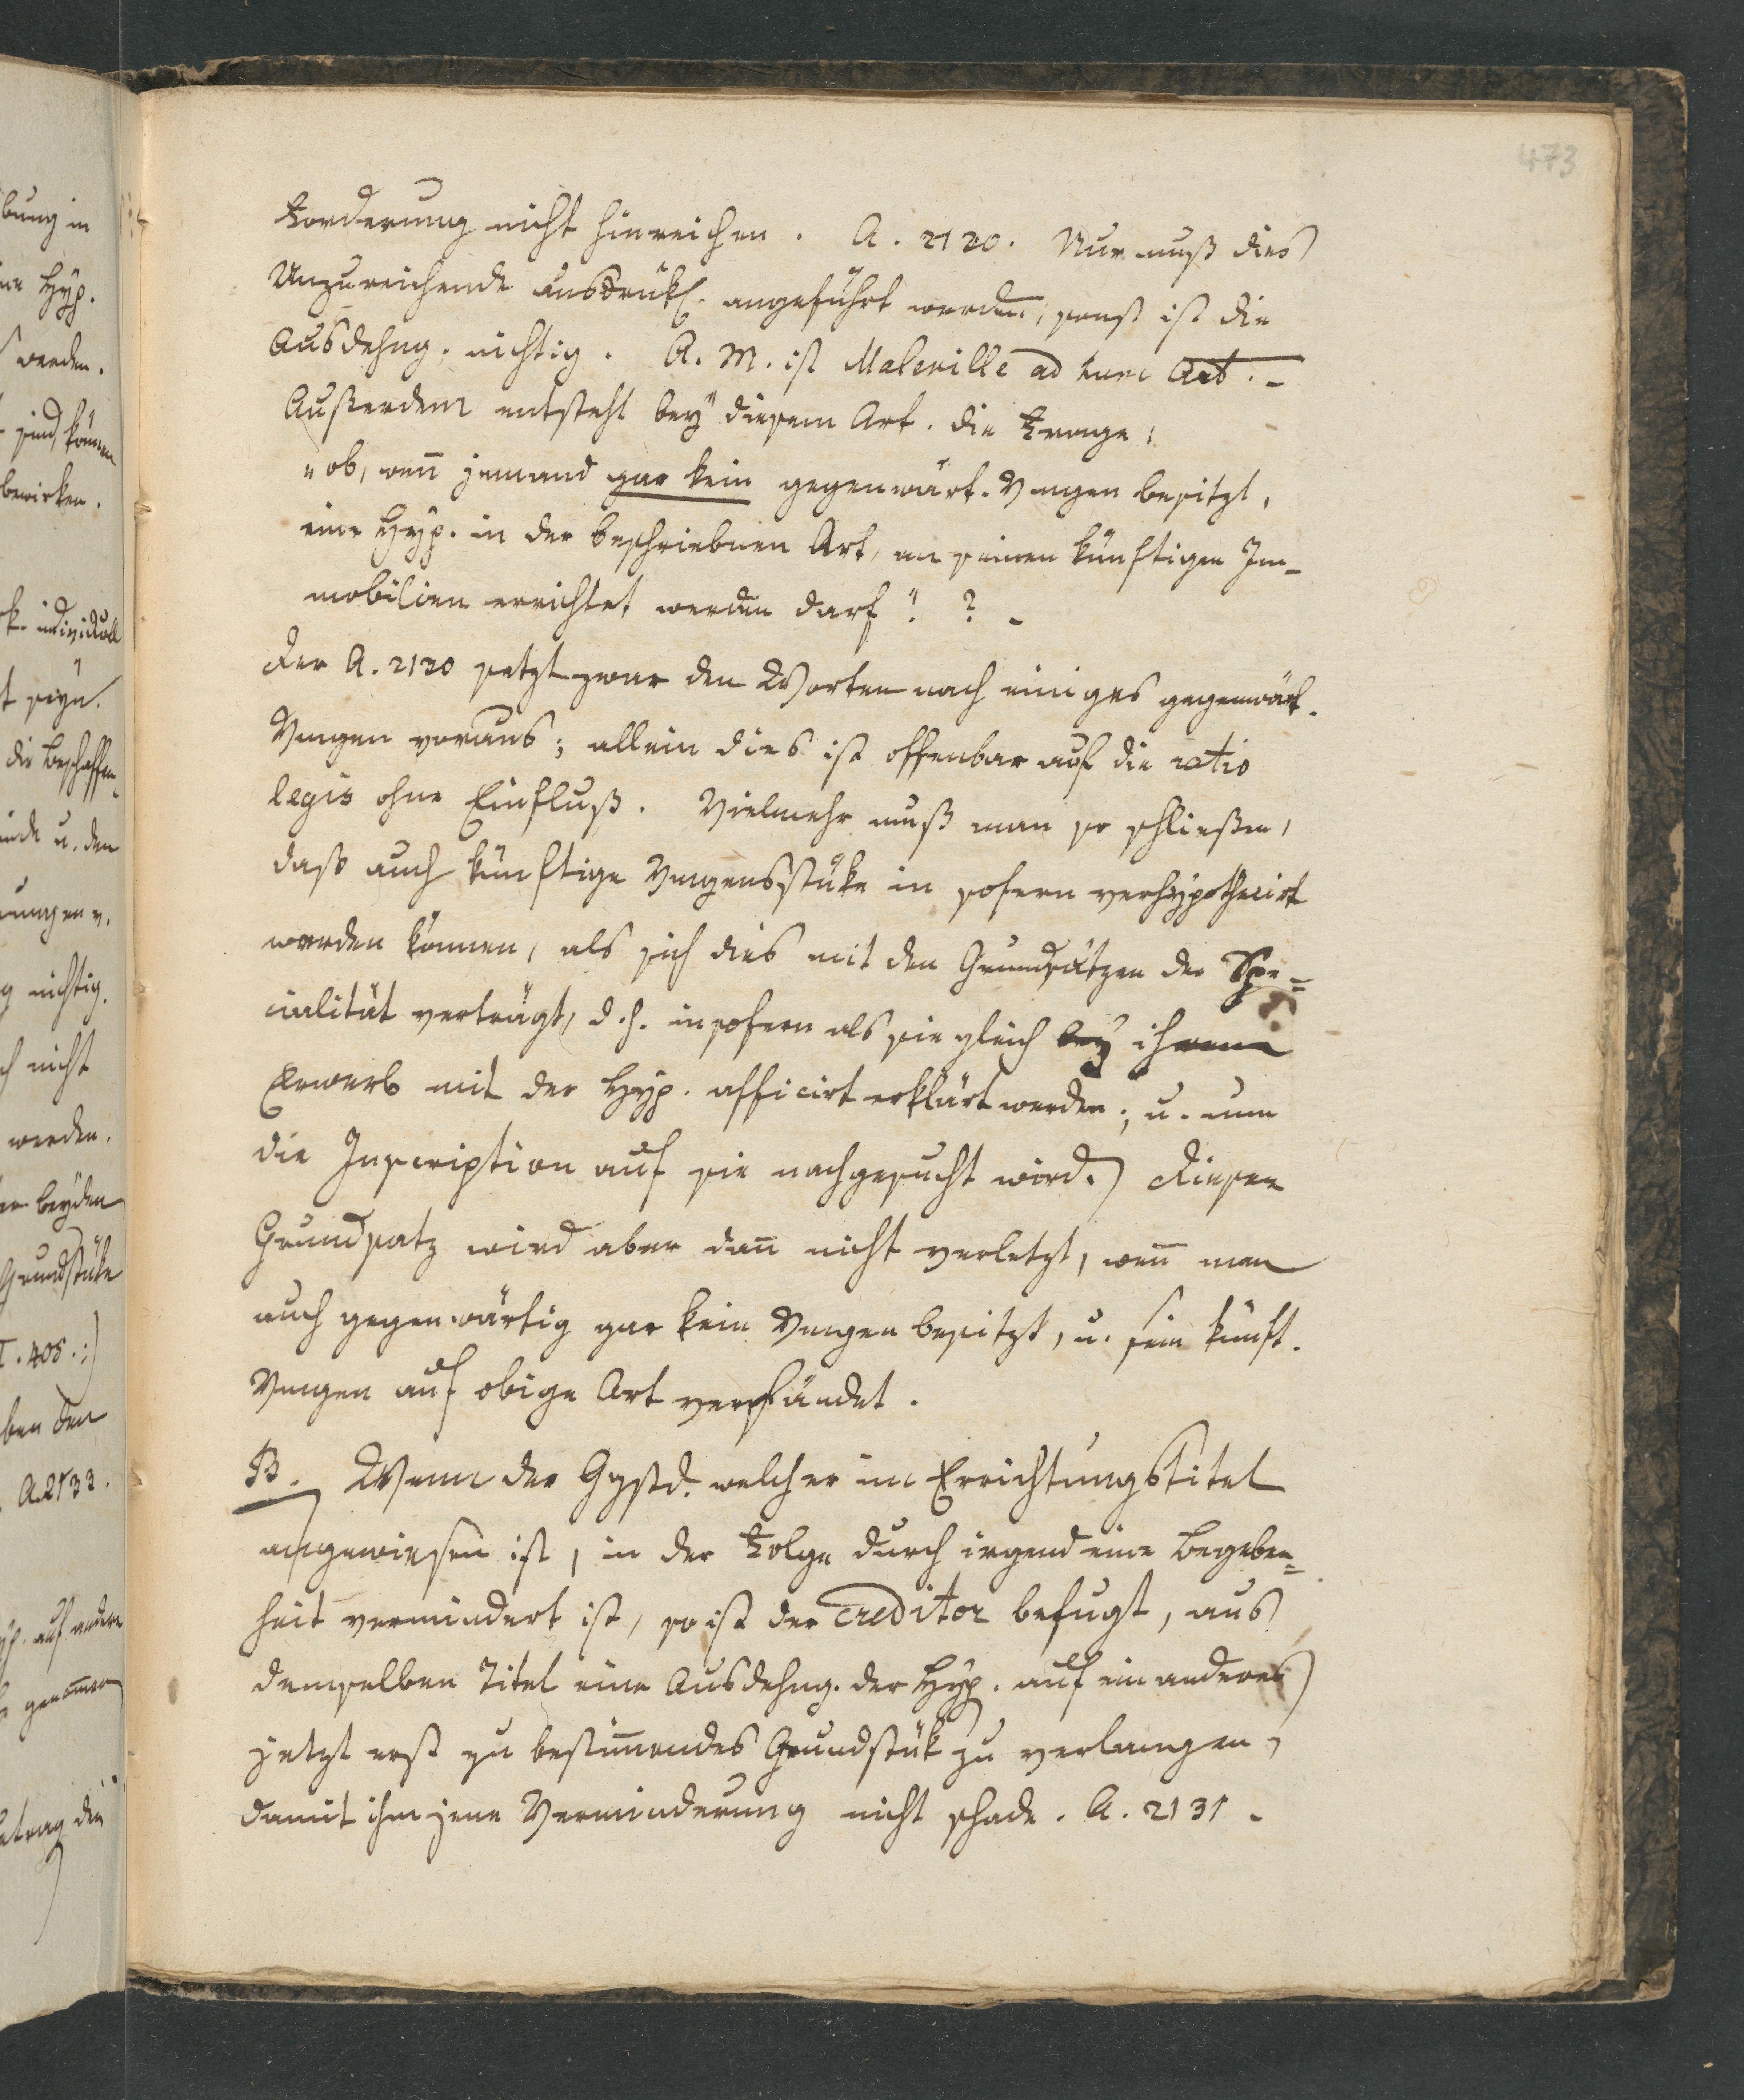 473
Forderung nicht hinreichen. A. 2130. Nur muß dies
Unzureichende ausdrükl. angeführt werden, sonst ist die
Ausdehng. nichtig. A. M. ist Maleville ad hunc Art. –
Außerdem entsteht bey diesem Art. die Frage:
"ob, wenn jemand gar kein gegenwärt. Vmgen besitzt,
eine Hyp. in der beschriebnen Art, an seinen künftigen Im-
mobilien errichtet werden darf"? –
Der A. 2130 setzt zwar den Worten nach einiges gegenwärt.
Vmgen voraus; allein dies ist offenbar auf die ratio
legis ohne Einfluß. Vielmehr muß man so schließen,
daß auch künftige Vmgensstüke in sofern verhypothecirt
werden können, als sich dies mit den Grundsätzen der Spe=
cialität verträgt, d. h. in sofern als sie gleich bey ihrem
Erwerb mit der Hyp. afficirt erklärt werden; u. nun
die Inscription auf sie nachgesucht wird.) Dieser
Grundsatz wird aber dann nicht verletzt, wenn man
auch gegenwärtig gar kein Vmgen besitzt, u. sein künft.
Vmgen auf obige Art verpfändet.
B. Wenn der Ggstd. welcher im Errichtungstitel
angewiesen ist, in der Folge durch irgend eine Begeben=
heit vermindert ist, so ist der Creditor befugt, aus
demselben Titel eine Ausdehng. der Hyp. auf ein anderes
jetzt erst zu bestimmendes Grundstük zu verlangen,
damit ihm jene Verminderung nicht schade. A. 2131.
bung in
ne Hyp.
werden.
sind, können
bewirken.
individuell
t seyn.
die Beschaffen
u. den
nichtig.
nicht
werden.
beyden
Grundstüke
T. 408.:)
ben den
A. 2133.
auf andere
genommen
Betrag die